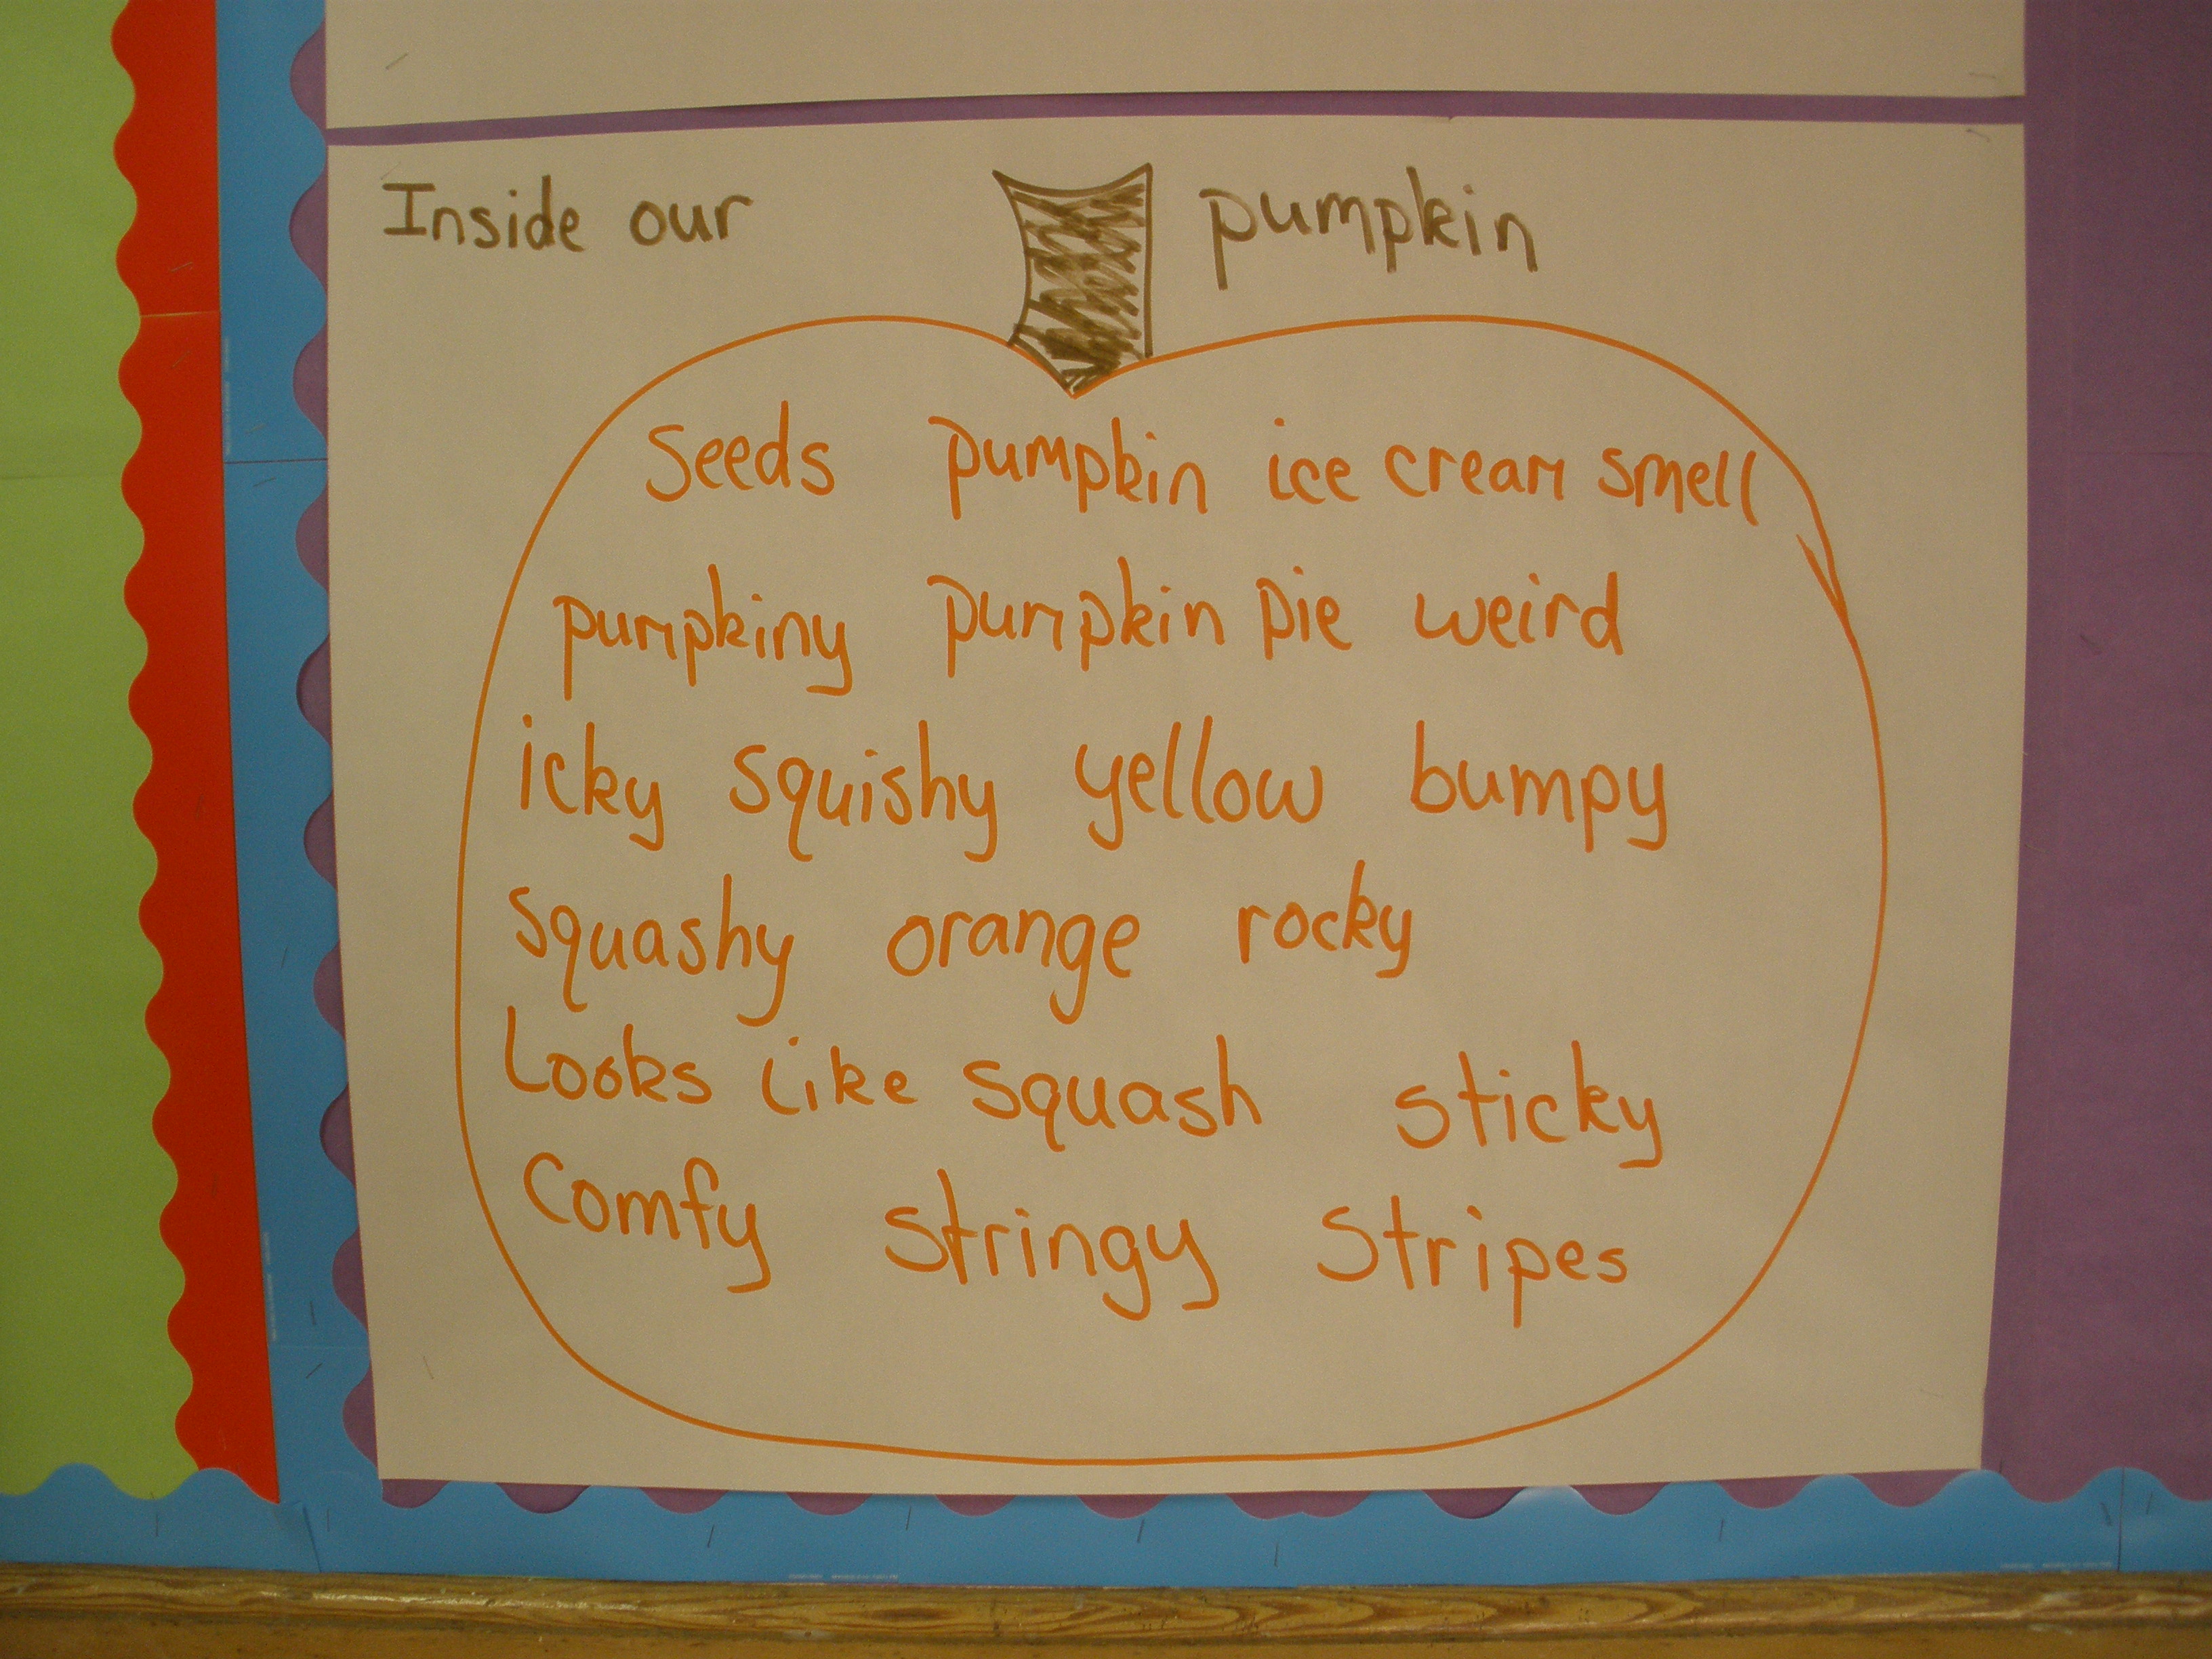 Inside our pumpkin
Seeds pumpkin ice cream smell
pumpkiny pumpkin pie weird
icky squishy yellow bumpy
squashy orange rocky
Looks like squash sticky
Comfy stringy Stripes